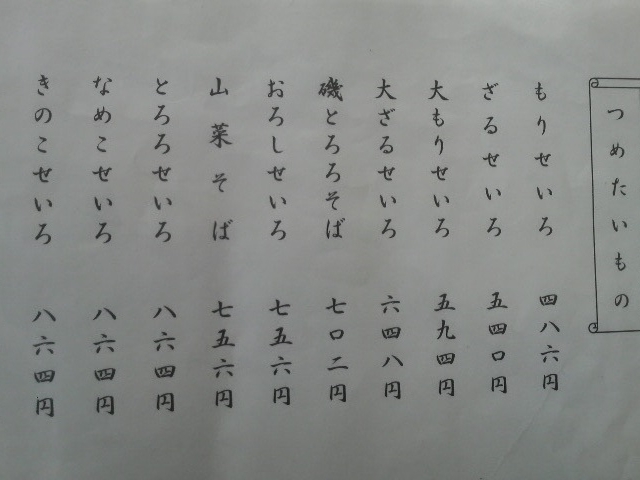 つめたいもの
もりせいろ 四八六円
ざるせいろ 五四〇円
大もりせいろ 五九四円
大ざるせいろ 六四八円
磯とろろそば 七〇二円
おろしせいろ 七五六円
山菜そば 七五六円
とろろせいろ 八六四円
なめこせいろ 八六四円
きのこせいろ 八六四円